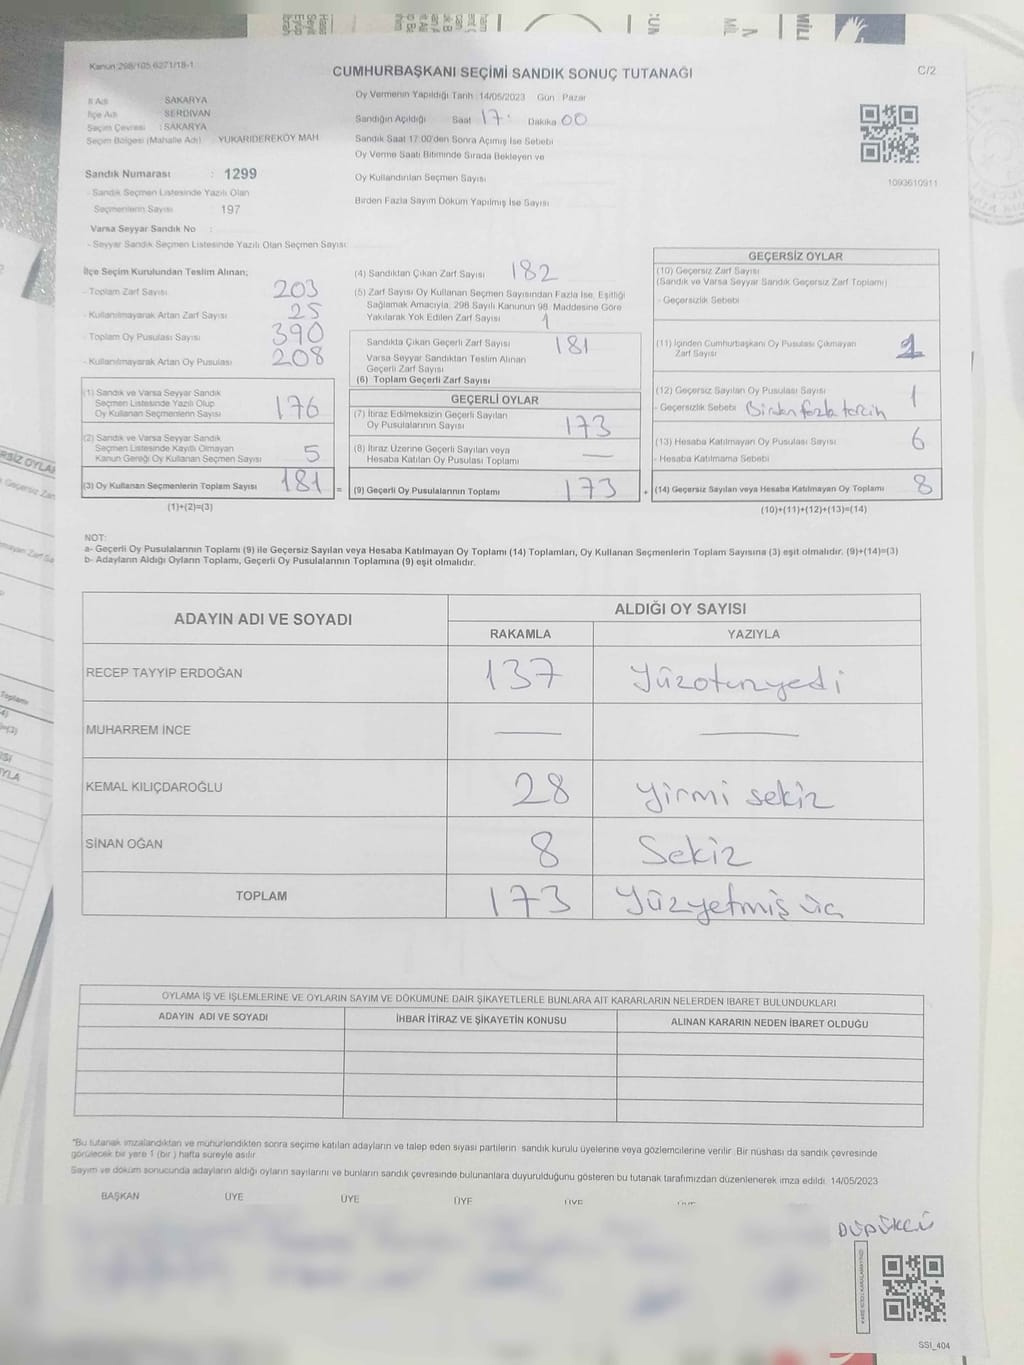 Kanun:298/105 6271/18-1
CUMHURBAŞKANI SEÇİMİ SANDIK SONUÇ TUTANAĞI
C/2
İl Adı SAKARYA
İlçe Adı SERDİVAN
Seçim Çevresi : SAKARYA
Seçim Bölgesi (Mahalle Adı) YUKARIDEREKÖY MAH
Oy Vermenin Yapıldığı Tarih 14/05/2023 Gün Pazar
Sandığın Açıldığı Saat 17 Dakika 00
Sandık Saat 17:00'den Sonra Açımış İse Sebebi
Oy Verme Saati Bitiminde Sırada Bekleyen ve
Oy Kullandırılan Seçmen Sayısı
Birden Fazla Sayım Döküm Yapılmış İse Sayısı
1093610911
Sandık Numarası : 1299
- Sandık Seçmen Listesinde Yazılı Olan
Seçmenlerin Sayısı : 197
Varsa Seyyar Sandık No :
- Seyyar Sandık Seçmen Listesinde Yazılı Olan Seçmen Sayısı:
İlçe Seçim Kurulundan Teslim Alınan;
- Toplam Zarf Sayısı 203
- Kullanılmayarak Artan Zarf Sayısı 25
- Toplam Oy Pusulası Sayısı 390
- Kullanılmayarak Artan Oy Pusulası 208
(1) Sandık ve Varsa Seyyar Sandık
Seçmen Listesinde Yazılı Olup
Oy Kullanan Seçmenlerin Sayısı 176
(2) Sandık ve Varsa Seyyar Sandık
Seçmen Listesinde Kayıtlı Olmayan
Kanun Gereği Oy Kullanan Seçmen Sayısı 5
(3) Oy Kullanan Seçmenlerin Toplam Sayısı 181 =
(1)+(2)=(3)
(4) Sandıktan Çıkan Zarf Sayısı 182
(5) Zarf Sayısı Oy Kullanan Seçmen Sayısından Fazla İse, Eşitliği
Sağlamak Amacıyla, 298 Sayılı Kanunun 98. Maddesine Göre
Yakılarak Yok Edilen Zarf Sayısı 1
Sandıkta Çıkan Geçerli Zarf Sayısı 181
Varsa Seyyar Sandıktan Teslim Alınan
Geçerli Zarf Sayısı
(6) Toplam Geçerli Zarf Sayısı
GEÇERLİ OYLAR
(7) İtiraz Edilmeksizin Geçerli Sayılan
Oy Pusulalarının Sayısı 173
(8) İtiraz Üzerine Geçerli Sayılan veya
Hesaba Katılan Oy Pusulası Toplamı —
(9) Geçerli Oy Pusulalarının Toplamı 173 +
GEÇERSİZ OYLAR
(10) Geçersiz Zarf Sayısı
(Sandık ve Varsa Seyyar Sandık Geçersiz Zarf Toplamı)
- Geçersizlik Sebebi
(11) İçinden Cumhurbaşkanı Oy Pusulası Çıkmayan
Zarf Sayısı 1
(12) Geçersiz Sayılan Oy Pusulası Sayısı 1
- Geçersizlik Sebebi Birden fazla tercih
(13) Hesaba Katılmayan Oy Pusulası Sayısı 6
- Hesaba Katılmama Sebebi
(14) Geçersiz Sayılan veya Hesaba Katılmayan Oy Toplamı 8
(10)+(11)+(12)+(13)=(14)
NOT:
a- Geçerli Oy Pusulalarının Toplamı (9) ile Geçersiz Sayılan veya Hesaba Katılmayan Oy Toplamı (14) Toplamları, Oy Kullanan Seçmenlerin Toplam Sayısına (3) eşit olmalıdır. (9)+(14)=(3)
b- Adayların Aldığı Oyların Toplamı, Geçerli Oy Pusulalarının Toplamına (9) eşit olmalıdır.
ADAYIN ADI VE SOYADI
ALDIĞI OY SAYISI
RAKAMLA YAZIYLA
RECEP TAYYİP ERDOĞAN 137 Yüzotuzyedi
MUHARREM İNCE — —
KEMAL KILIÇDAROĞLU 28 yirmi sekiz
SİNAN OĞAN 8 Sekiz
TOPLAM 173 Yüzyetmiş üç
OYLAMA İŞ VE İŞLEMLERİNE VE OYLARIN SAYIM VE DÖKÜMÜNE DAİR ŞİKAYETLERLE BUNLARA AİT KARARLARIN NELERDEN İBARET BULUNDUKLARI
ADAYIN ADI VE SOYADI İHBAR İTİRAZ VE ŞİKAYETİN KONUSU ALINAN KARARIN NEDEN İBARET OLDUĞU
"Bu tutanak imzalandıktan ve mühürlendikten sonra seçime katılan adayların ve talep eden siyasi partilerin sandık kurulu üyelerine veya gözlemcilerine verilir. Bir nüshası da sandık çevresinde
görülecek bir yere 1 (bir) hafta süreyle asılır
Sayım ve döküm sonucunda adayların aldığı oyların sayılarını ve bunların sandık çevresinde bulunanlara duyurulduğunu gösteren bu tutanak tarafımızdan düzenlenerek imza edildi. 14/05/2023
BAŞKAN ÜYE ÜYE ÜYE ÜYE
DÜDÜKCÜ
SSI_404